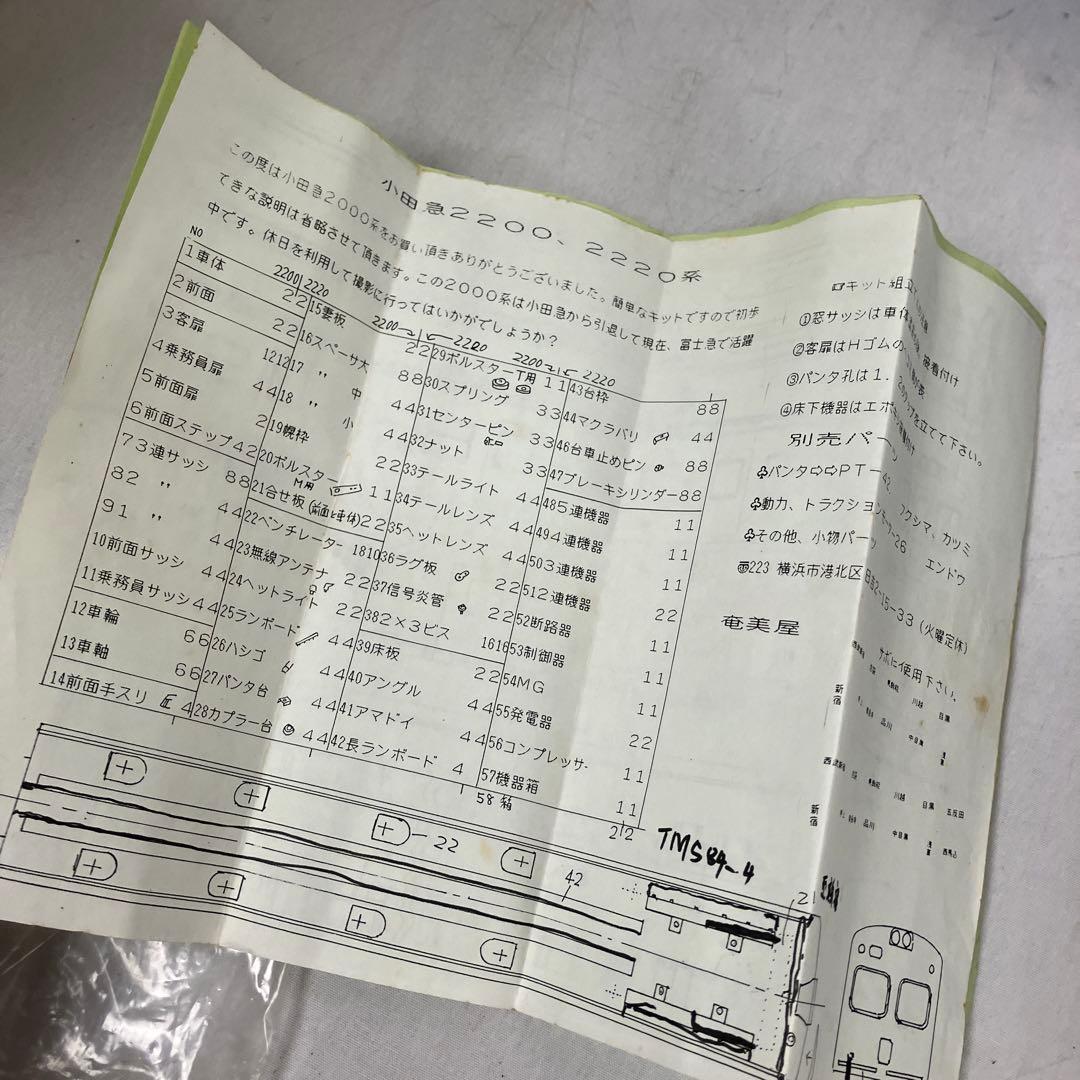 小田急2200、2220系
この度は小田急2000系をお買い頂きありがとうございました。簡単なキットですので初歩
てきな説明は省略させて頂きます。この2000系は小田急から引退して現在、富士急で活躍
中です。休日を利用して撮影に行ってはいかがでしょうか?
NO 2200 2220
1車体 22
2前面 22
3客扉 1212
4乗務員扉 44
5前面扉 2
6前面ステップ 42
73連サッシ 88
82 〃 44
91 〃 44
10前面サッシ 44
11乗務員サッシ 44
12車輪 66
13車軸 66
14前面手スリ 4
2200 2220
15妻板 22
16スペーサ大 88
17 〃 中 44
18 〃 小 44
19幌枠 22
20ボルスターM用 11
21合せ板(前面と車体) 22
22ベンチレーター 1810
23無線アンテナ 22
24ヘットライト 22
25ランボード 44
26ハシゴ 44
27パンタ台 44
28カプラー台 44
2200 2220
29ボルスターT用 11
30スプリング 33
31センターピン 33
32ナット 33
33テールライト 44
34テールレンズ 44
35ヘットレンズ 44
36ラグ板 22
37信号炎管 22
382×3ビス 1616
39床板 22
40アングル 44
41アマドイ 44
42長ランボード 4
43台枠 88
44マクラバリ 44
46台車止めピン 88
47ブレーキシリンダー 88
485連機器 11
494連機器 11
503連機器 11
512連機器 22
52断路器 11
53制御器 11
54MG 11
55発電器 22
56コンプレッサー 11
57機器箱 11
58箱 22
ロキット組
①窓サッシは車体 接着付け
②客扉はHゴムの
③パンタ孔は1.
を立てて下さい。
④床下機器はエポ
別売パーツ
♧パンタ⇨⇨PT-42 フクシマ、カツミ
♧動力、トラクションモーター26 エンドウ
♧その他、小物パーツ
〠223 横浜市港北区日吉2-15-33(火曜定休)
奄美屋
サボにご使用下さい。
新宿
品川
中目黒
川越
目黒
五反田
新宿
品川
中目黒
西馬込
TMS84-4
22
42
21